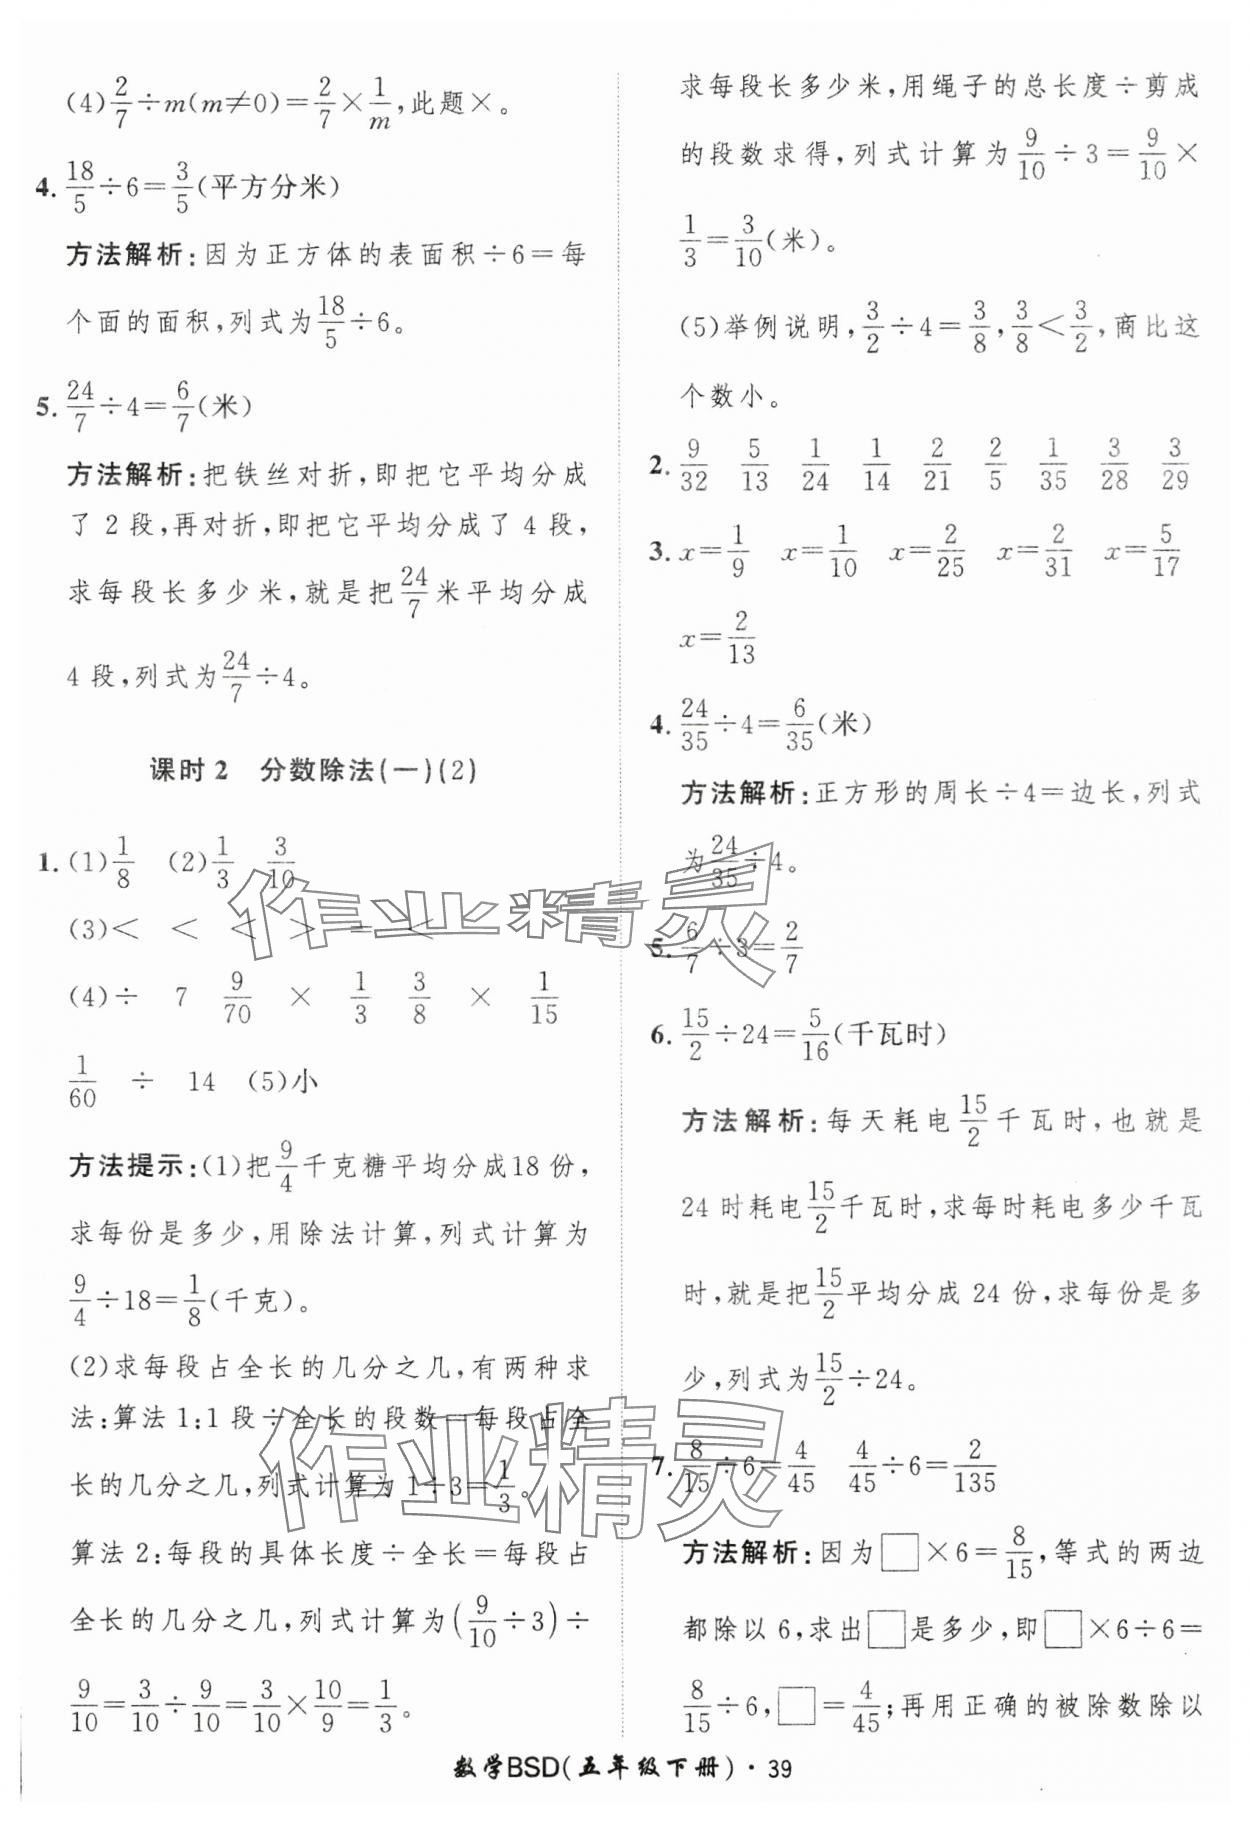 (4) 2/7÷m(m≠0)=2/7×1/m,此题×。
4. 18/5÷6=3/5(平方分米)
方法解析:因为正方体的表面积÷6=每
个面的面积,列式为18/5÷6。
5. 24/7÷4=6/7(米)
方法解析:把铁丝对折,即把它平均分成
了2段,再对折,即把它平均分成了4段,
求每段长多少米,就是把24/7米平均分成
4段,列式为24/7÷4。
课时2 分数除法(一)(2)
1. (1)1/8 (2)1/3 3/10
(3)< < < > = <
(4)÷ 7 9/70 × 1/3 3/8 × 1/15
1/60 ÷ 14 (5)小
方法提示:(1)把9/4千克糖平均分成18份,
求每份是多少,用除法计算,列式计算为
9/4÷18=1/8(千克)。
(2)求每段占全长的几分之几,有两种求
法:算法1:1段÷全长的段数=每段占全
长的几分之几,列式计算为1÷3=1/3。
算法2:每段的具体长度÷全长=每段占
全长的几分之几,列式计算为(9/10÷3)÷
9/10=3/10÷9/10=3/10×10/9=1/3。
求每段长多少米,用绳子的总长度÷剪成
的段数求得,列式计算为9/10÷3=9/10×
1/3=3/10(米)。
(5)举例说明,3/2÷4=3/8,3/8<3/2,商比这
个数小。
2. 9/32 5/13 1/24 1/14 2/21 2/5 1/35 3/28 3/29
3. x=1/9 x=1/10 x=2/25 x=2/31 x=5/17
x=2/13
4. 24/35÷4=6/35(米)
方法解析:正方形的周长÷4=边长,列式
为24/35÷4。
5. 6/7÷3=2/7
6. 15/2÷24=5/16(千瓦时)
方法解析:每天耗电15/2千瓦时,也就是
24时耗电15/2千瓦时,求每时耗电多少千瓦
时,就是把15/2平均分成24份,求每份是多
少,列式为15/2÷24。
7. 8/15÷6=4/45 4/45÷6=2/135
方法解析:因为□×6=8/15,等式的两边
都除以6,求出□是多少,即□×6÷6=
8/15÷6,□=4/45;再用正确的被除数除以
数学BSD(五年级下册)·39
作业精灵
作业精灵